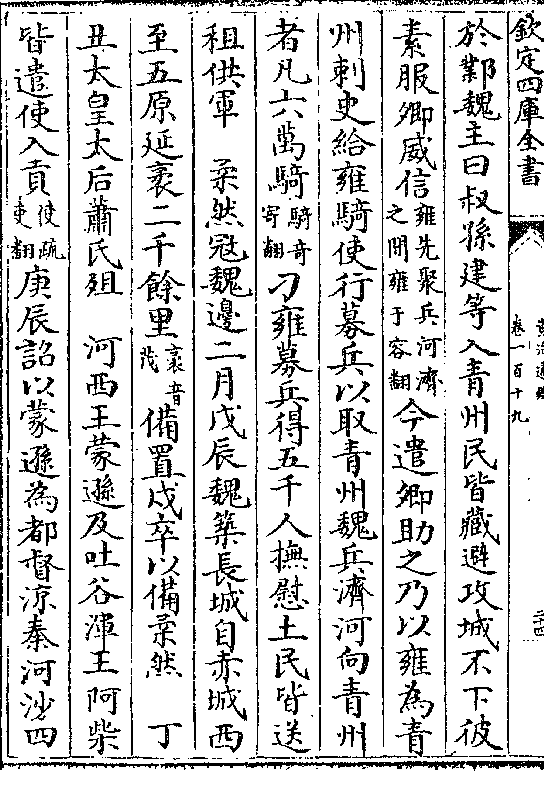 欽定四庫全書
資治通鑑
卷一百十九
於鄴魏主曰叔孫建等入青州民皆藏避攻城不下彼
素服卿威信雍先聚兵河濟之間雍于容翻今遣卿助之乃以雍為青
州刺史給雍騎使行募兵以取青州魏兵濟河向青州
者凡六萬騎騎奇寄翻刁雍募兵得五千人撫慰士民皆送
租供軍 柔然寇魏邊二月戊辰魏築長城自赤城西
至五原延袤二千餘里袤音茂備置戍卒以備柔然 丁
丑太皇太后蕭氏殂 河西王蒙遜及吐谷渾王阿柴
皆遣使入貢使疏吏翻庚辰詔以蒙遜為都督涼秦河沙四